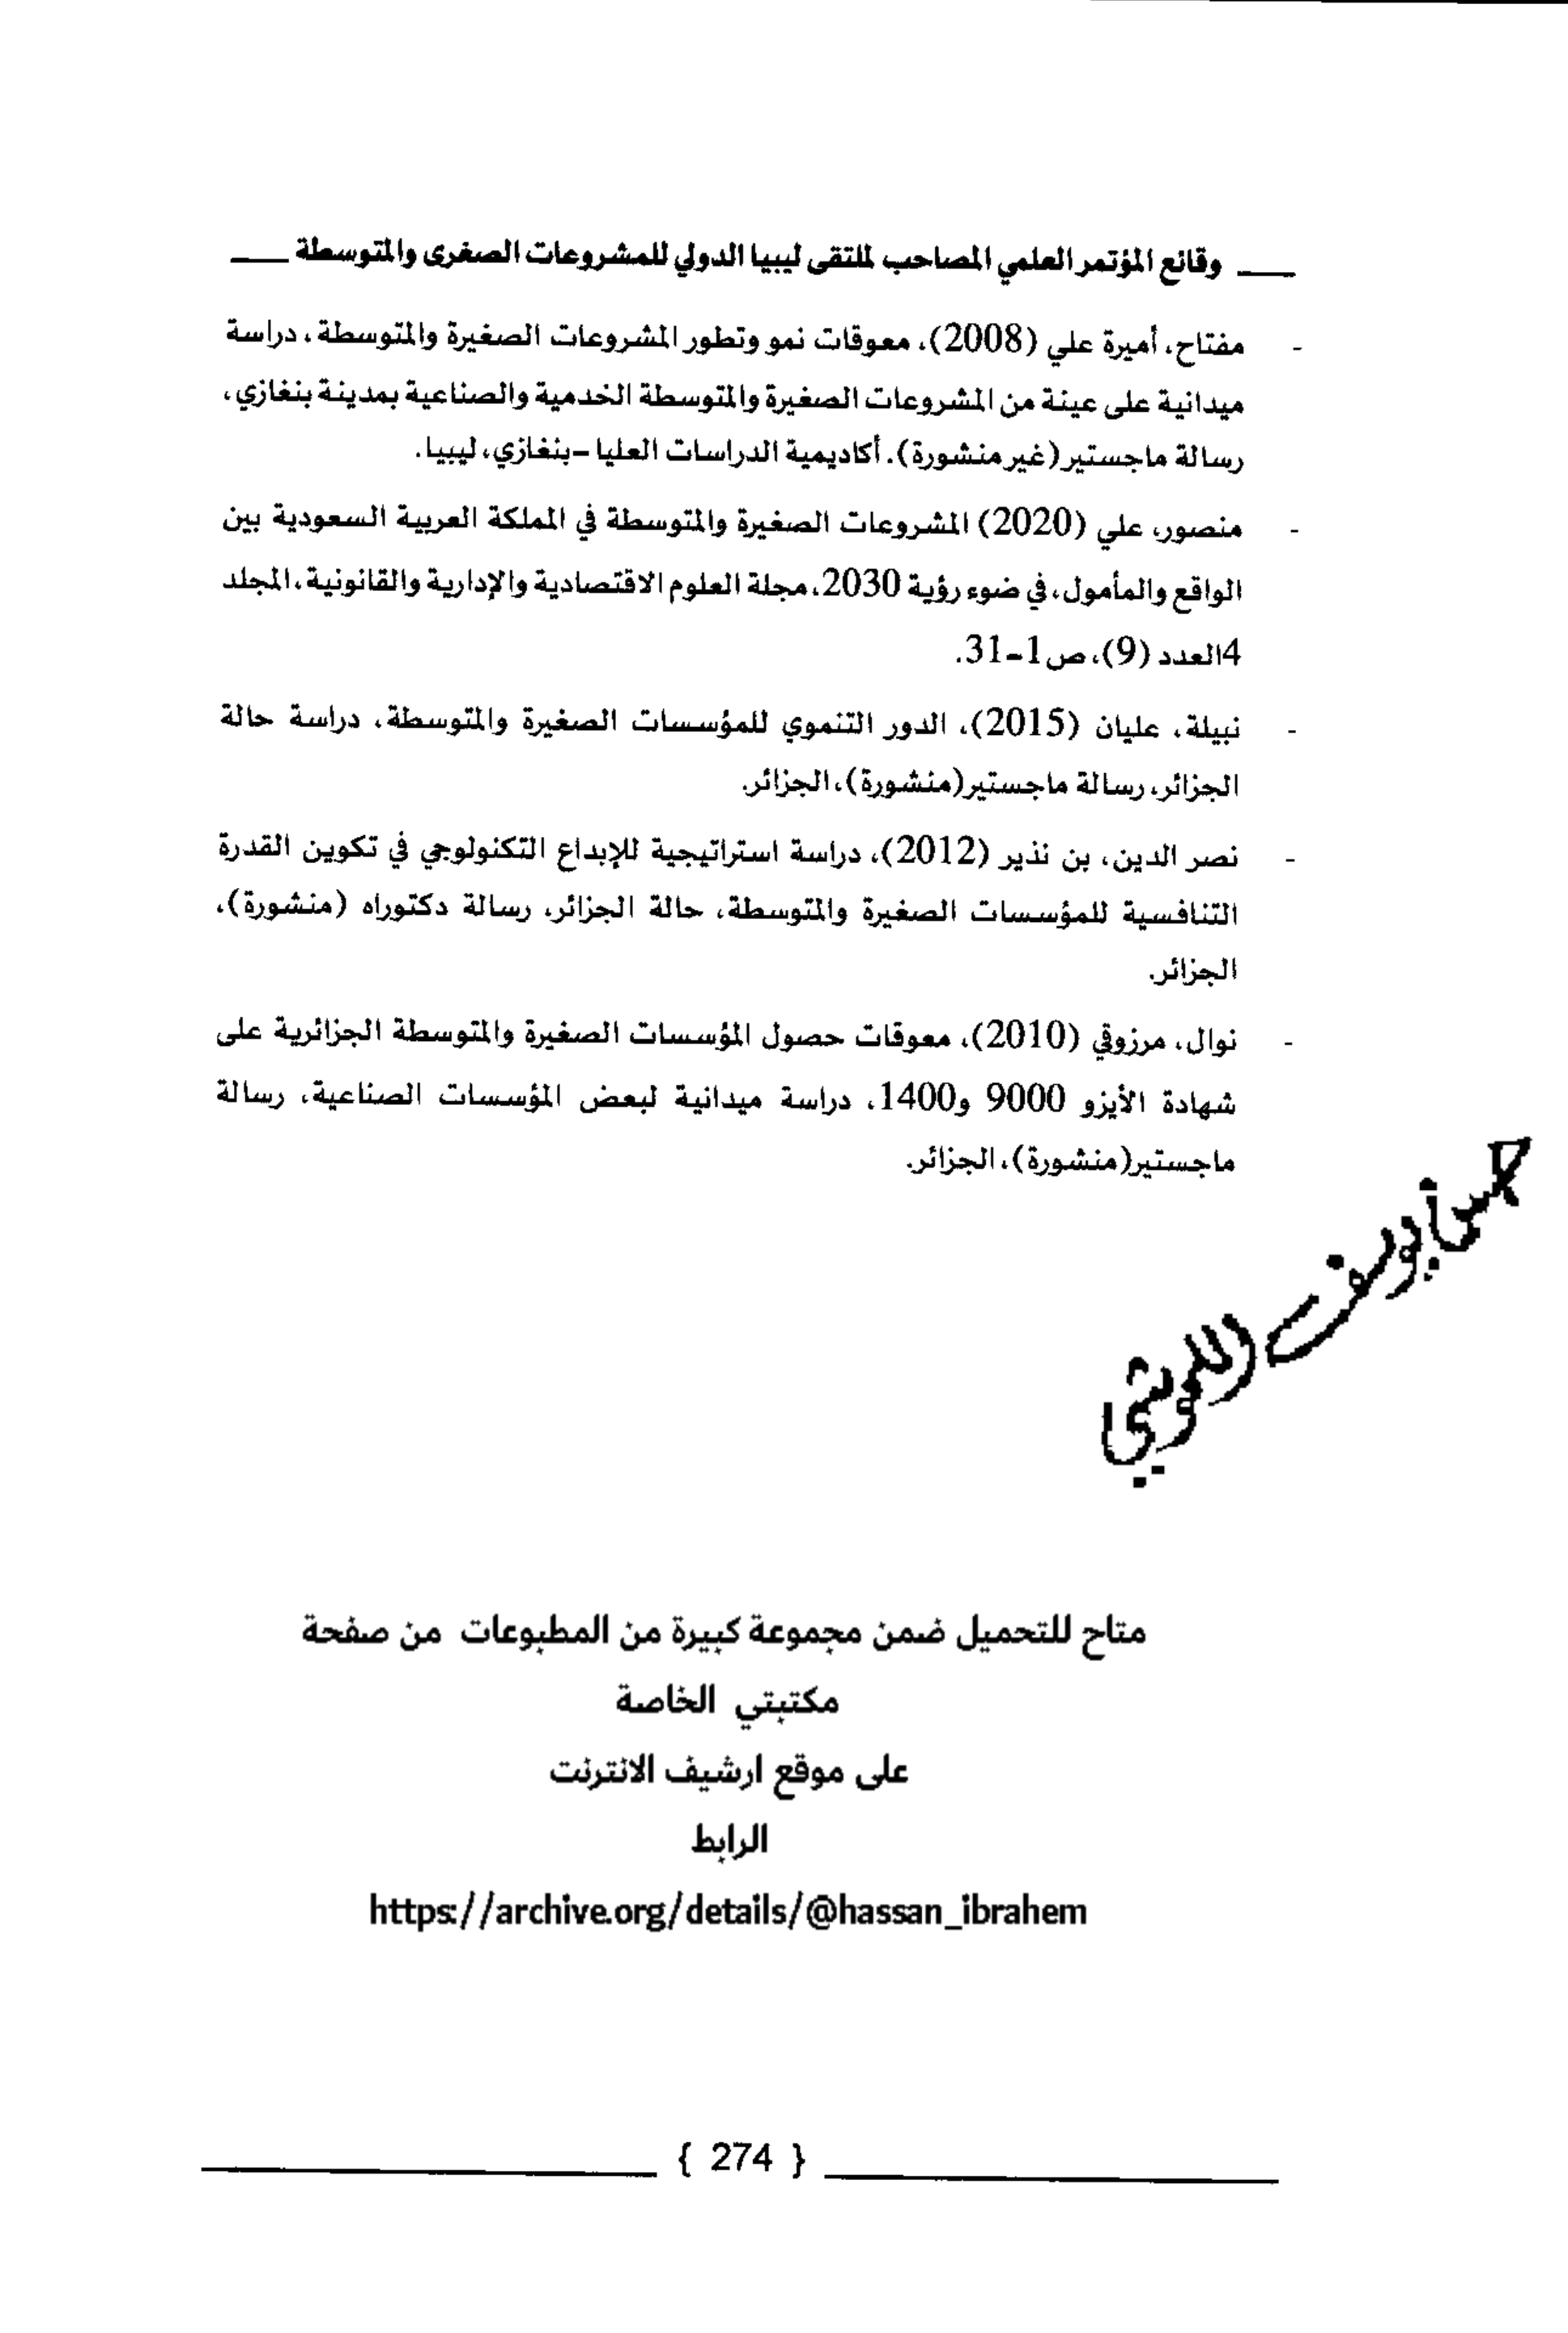 وقائع المؤتمر العلمي المصاحب لملتقى ليبيا الدولي للمشروعات الصغرى والمتوسطة
- مفتاح، أميرة علي (2008)، معوقات نمو وتطور المشروعات الصغيرة والمتوسطة، دراسة
ميدانية على عينة من المشروعات الصغيرة والمتوسطة الخدمية والصناعية بمدينة بنغازي،
رسالة ماجستير(غير منشورة). أكاديمية الدراسات العليا –بنغازي، ليبيا.
- منصور، علي (2020) المشروعات الصغيرة والمتوسطة في المملكة العربية السعودية بين
الواقع والمأمول، في ضوء رؤية 2030، مجلة العلوم الاقتصادية والإدارية والقانونية، المجلد
4العدد (9)، ص1-31.
- نبيلة، عليان (2015)، الدور التنموي للمؤسسات الصغيرة والمتوسطة، دراسة حالة
الجزائر، رسالة ماجستير(منشورة)، الجزائر.
- نصر الدين، بن نذير (2012)، دراسة استراتيجية للإبداع التكنولوجي في تكوين القدرة
التنافسية للمؤسسات الصغيرة والمتوسطة، حالة الجزائر، رسالة دكتوراه (منشورة)،
الجزائر.
- نوال، مرزوقي (2010)، معوقات حصول المؤسسات الصغيرة والمتوسطة الجزائرية على
شهادة الأيزو 9000 و1400، دراسة ميدانية لبعض المؤسسات الصناعية، رسالة
ماجستير(منشورة)، الجزائر.
متاح للتحميل ضمن مجموعة كبيرة من المطبوعات من صفحة
مكتبتي الخاصة
على موقع ارشيف الانترنت
الرابط
https://archive.org/details/@hassan_ibrahem
{ 274 }